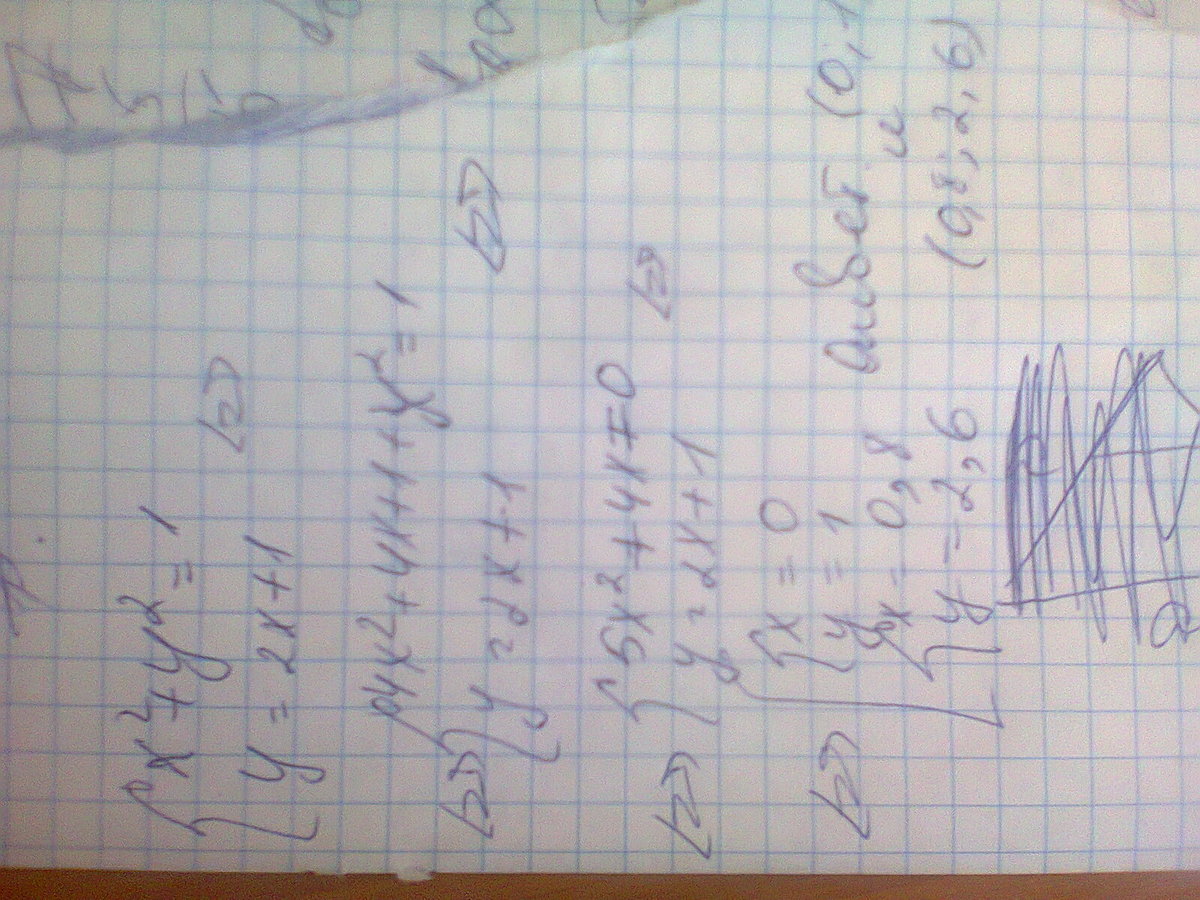 { x²+y²=1
y = 2x+1 <=>
<=> { 4x²+4x+1+y²=1
y = 2x+1 <=>
<=> { 5x²+4x=0
y = 2x+1 <=>
<=> [ { x = 0
y = 1
{ x = 0,8
y = 2,6
Ответ (0;1
и
(0,8; 2,6)